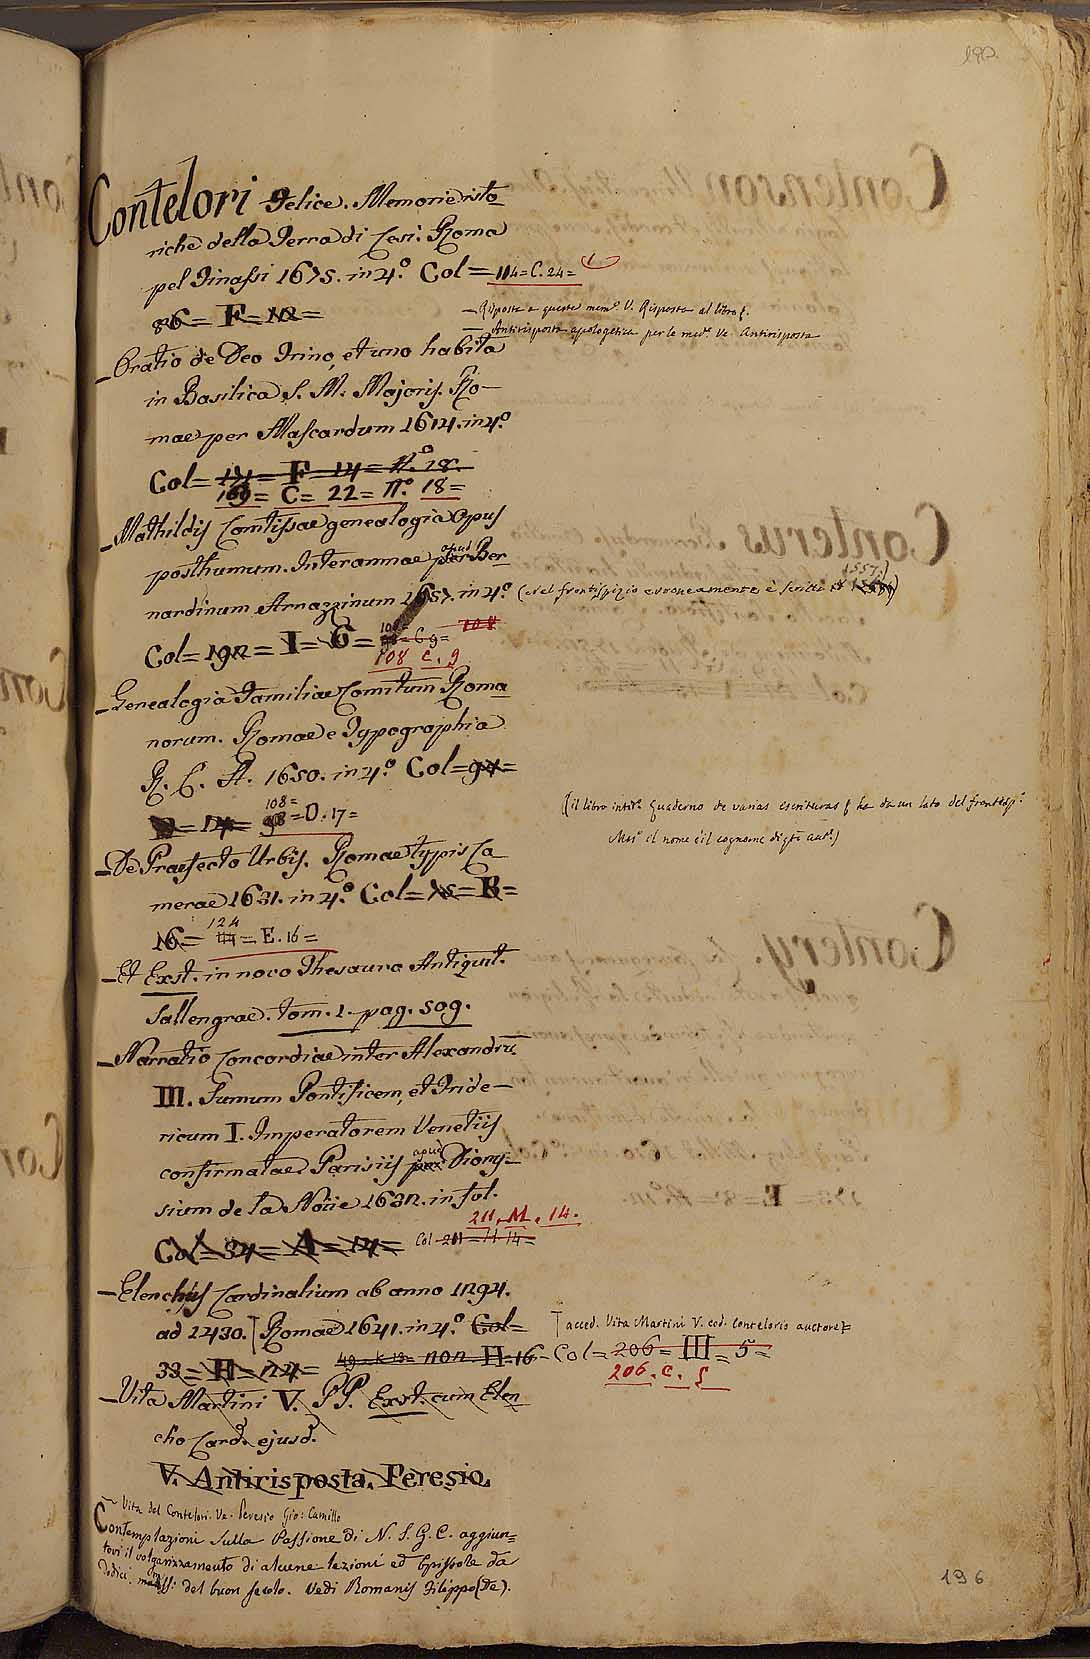 190.
Contelori Felice. Memorie isto
riche della Terra di Cesi. Roma
pel Tinassi 1675. in 4.º Col = 104 = C. 24 =
86 = F = 12 =
— Risposta a queste mem.e V. Risposta al libro
— Antirisposta apologetica per le med.e Ve. Antirisposta
— Oratio de Deo Trino, et uno habita
in Basilica S. M. Majoris. Ro-
mae per Mascardum 1614. in 4.º
Col = 171 = F = 14 = N.º 18.
169 = C = 22 = N.º 18 =
— Mathildis Comtissae genealogia Opus
posthumum. Interamnae per apud Ber
nardinum Arnazzinum 1657. in 4.º (nel frontispizio erroneamente è scritto 1557.)
Col = 192 = I = 6 = 108 = C 9 = 108
108 C. 9
— Genealogia Familiae Comitum Roma
norum. Romae e Typographia
R. C. A. 1650. in 4.º Col = 97 =
= 14 = 98 = O. 17 =
108 =
((il libro intit.º Quaderno de varias escrituras ha da un lato del frontesp.º
Ms.º il nome e il cognome di q.to aut.e)
— De Praefecto Urbis. Romae typis Ca
merae 1631. in 4.º Col = 15 = B =
16 = 124 = E. 16 =
— Et Exst. in novo Thesauro Antiquit.
Sallengrae. tom. 1. pag. 509.
— Narratio Concordiae inter Alexandrũ
III. Sumum Pontificem, et Fride-
ricum I. Imperatorem Venetiis
confirmatae Parisiis per apud Diony-
sium de la Noüe 1632. in fol.
211. M. 14.
Col = 34 = A = 14 = Col 211 = H 14 =
— Elenchus Cardinalium ab anno 1294.
ad 1430. Romae 1641. in 4.º Col =
accd. Vita Martini V. eod. Contelorio auctore
33 = H = 24 = 49 = K 19 = non H = 16 - Col = 206 = III = 5 =
206. C.
— Vita Martini V. PP. Exst. cum Elen
cho Card. ejusd.
V. Antirisposta. Peresio.
— Vita del Contelori. Ve. Peresio Gio: Camillo
Contemplazioni sulla Passione di N. S. G. C. aggiun=
tovi il volgarizzamento di alcune lezioni ed Epistole da
Codici mss: del buon secolo. Vedi Romanis Filippo (De).
196